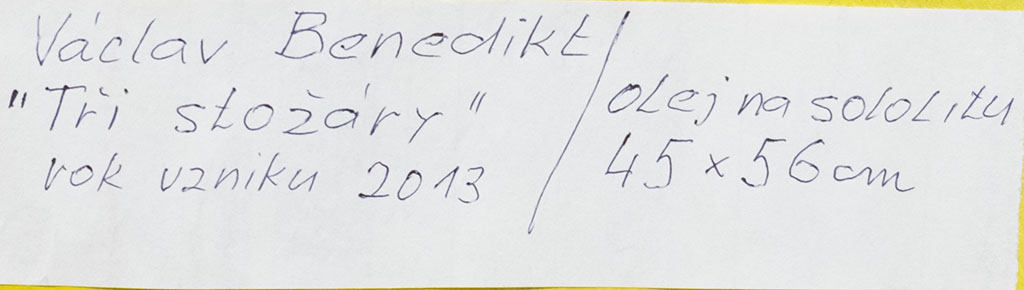 Václav Benedikt
"Tři stožáry"
rok vzniku 2013
olej na sololitu
45 x 56 cm